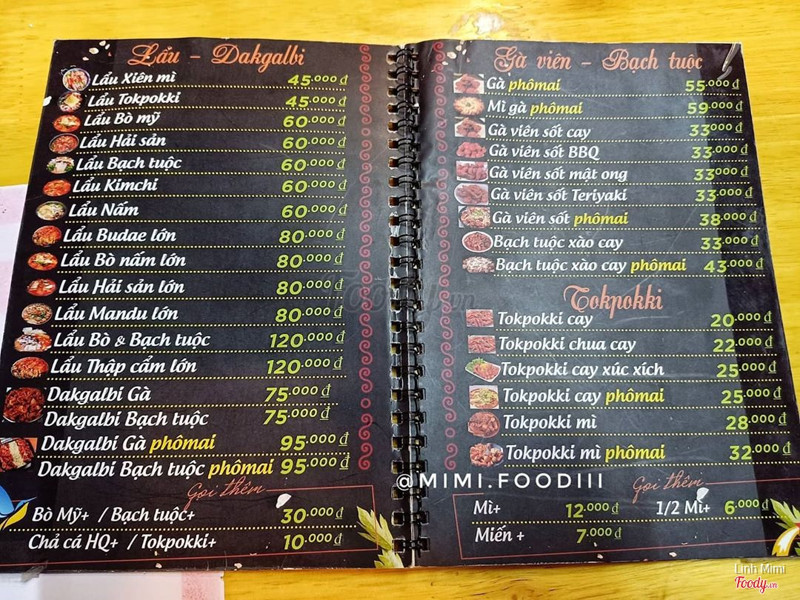 Lẩu - Dakgalbi
Lẩu Xiên mì 45.000 đ
Lẩu Tokpokki 45.000 đ
Lẩu Bò mỹ 60.000 đ
Lẩu Hải sản 60.000 đ
Lẩu Bạch tuộc 60.000 đ
Lẩu Kimchi 60.000 đ
Lẩu Nấm 60.000 đ
Lẩu Budae lớn 80.000 đ
Lẩu Bò nấm lớn 80.000 đ
Lẩu Hải sản lớn 80.000 đ
Lẩu Mandu lớn 80.000 đ
Lẩu Bò & Bạch tuộc 120.000 đ
Lẩu Thập cẩm lớn 120.000 đ
Dakgalbi Gà 75.000 đ
Dakgalbi Bạch tuộc 75.000 đ
Dakgalbi Gà phômai 95.000 đ
Dakgalbi Bạch tuộc phômai 95.000 đ
Gọi thêm
Bò Mỹ+ / Bạch tuộc+ 30.000 đ
Chả cá HQ+ / Tokpokki+ 10.000 đ
Gà viên - Bạch tuộc
Gà phômai 55.000 đ
Mì gà phômai 59.000 đ
Gà viên sốt cay 33.000 đ
Gà viên sốt BBQ 33.000 đ
Gà viên sốt mật ong 33.000 đ
Gà viên sốt Teriyaki 33.000 đ
Gà viên sốt phômai 38.000 đ
Bạch tuộc xào cay 33.000 đ
Bạch tuộc xào cay phômai 43.000 đ
Tokpokki
Tokpokki cay 20.000 đ
Tokpokki chua cay 22.000 đ
Tokpokki cay xúc xích 25.000 đ
Tokpokki cay phômai 25.000 đ
Tokpokki mì 28.000 đ
Tokpokki mì phômai 32.000 đ
Gọi thêm
Mì+ 12.000 đ 1/2 Mì+ 6.000 đ
Miến + 7.000 đ
Foody.vn
@MIMI.FOODIII
Linh Mimi
Foody.vn